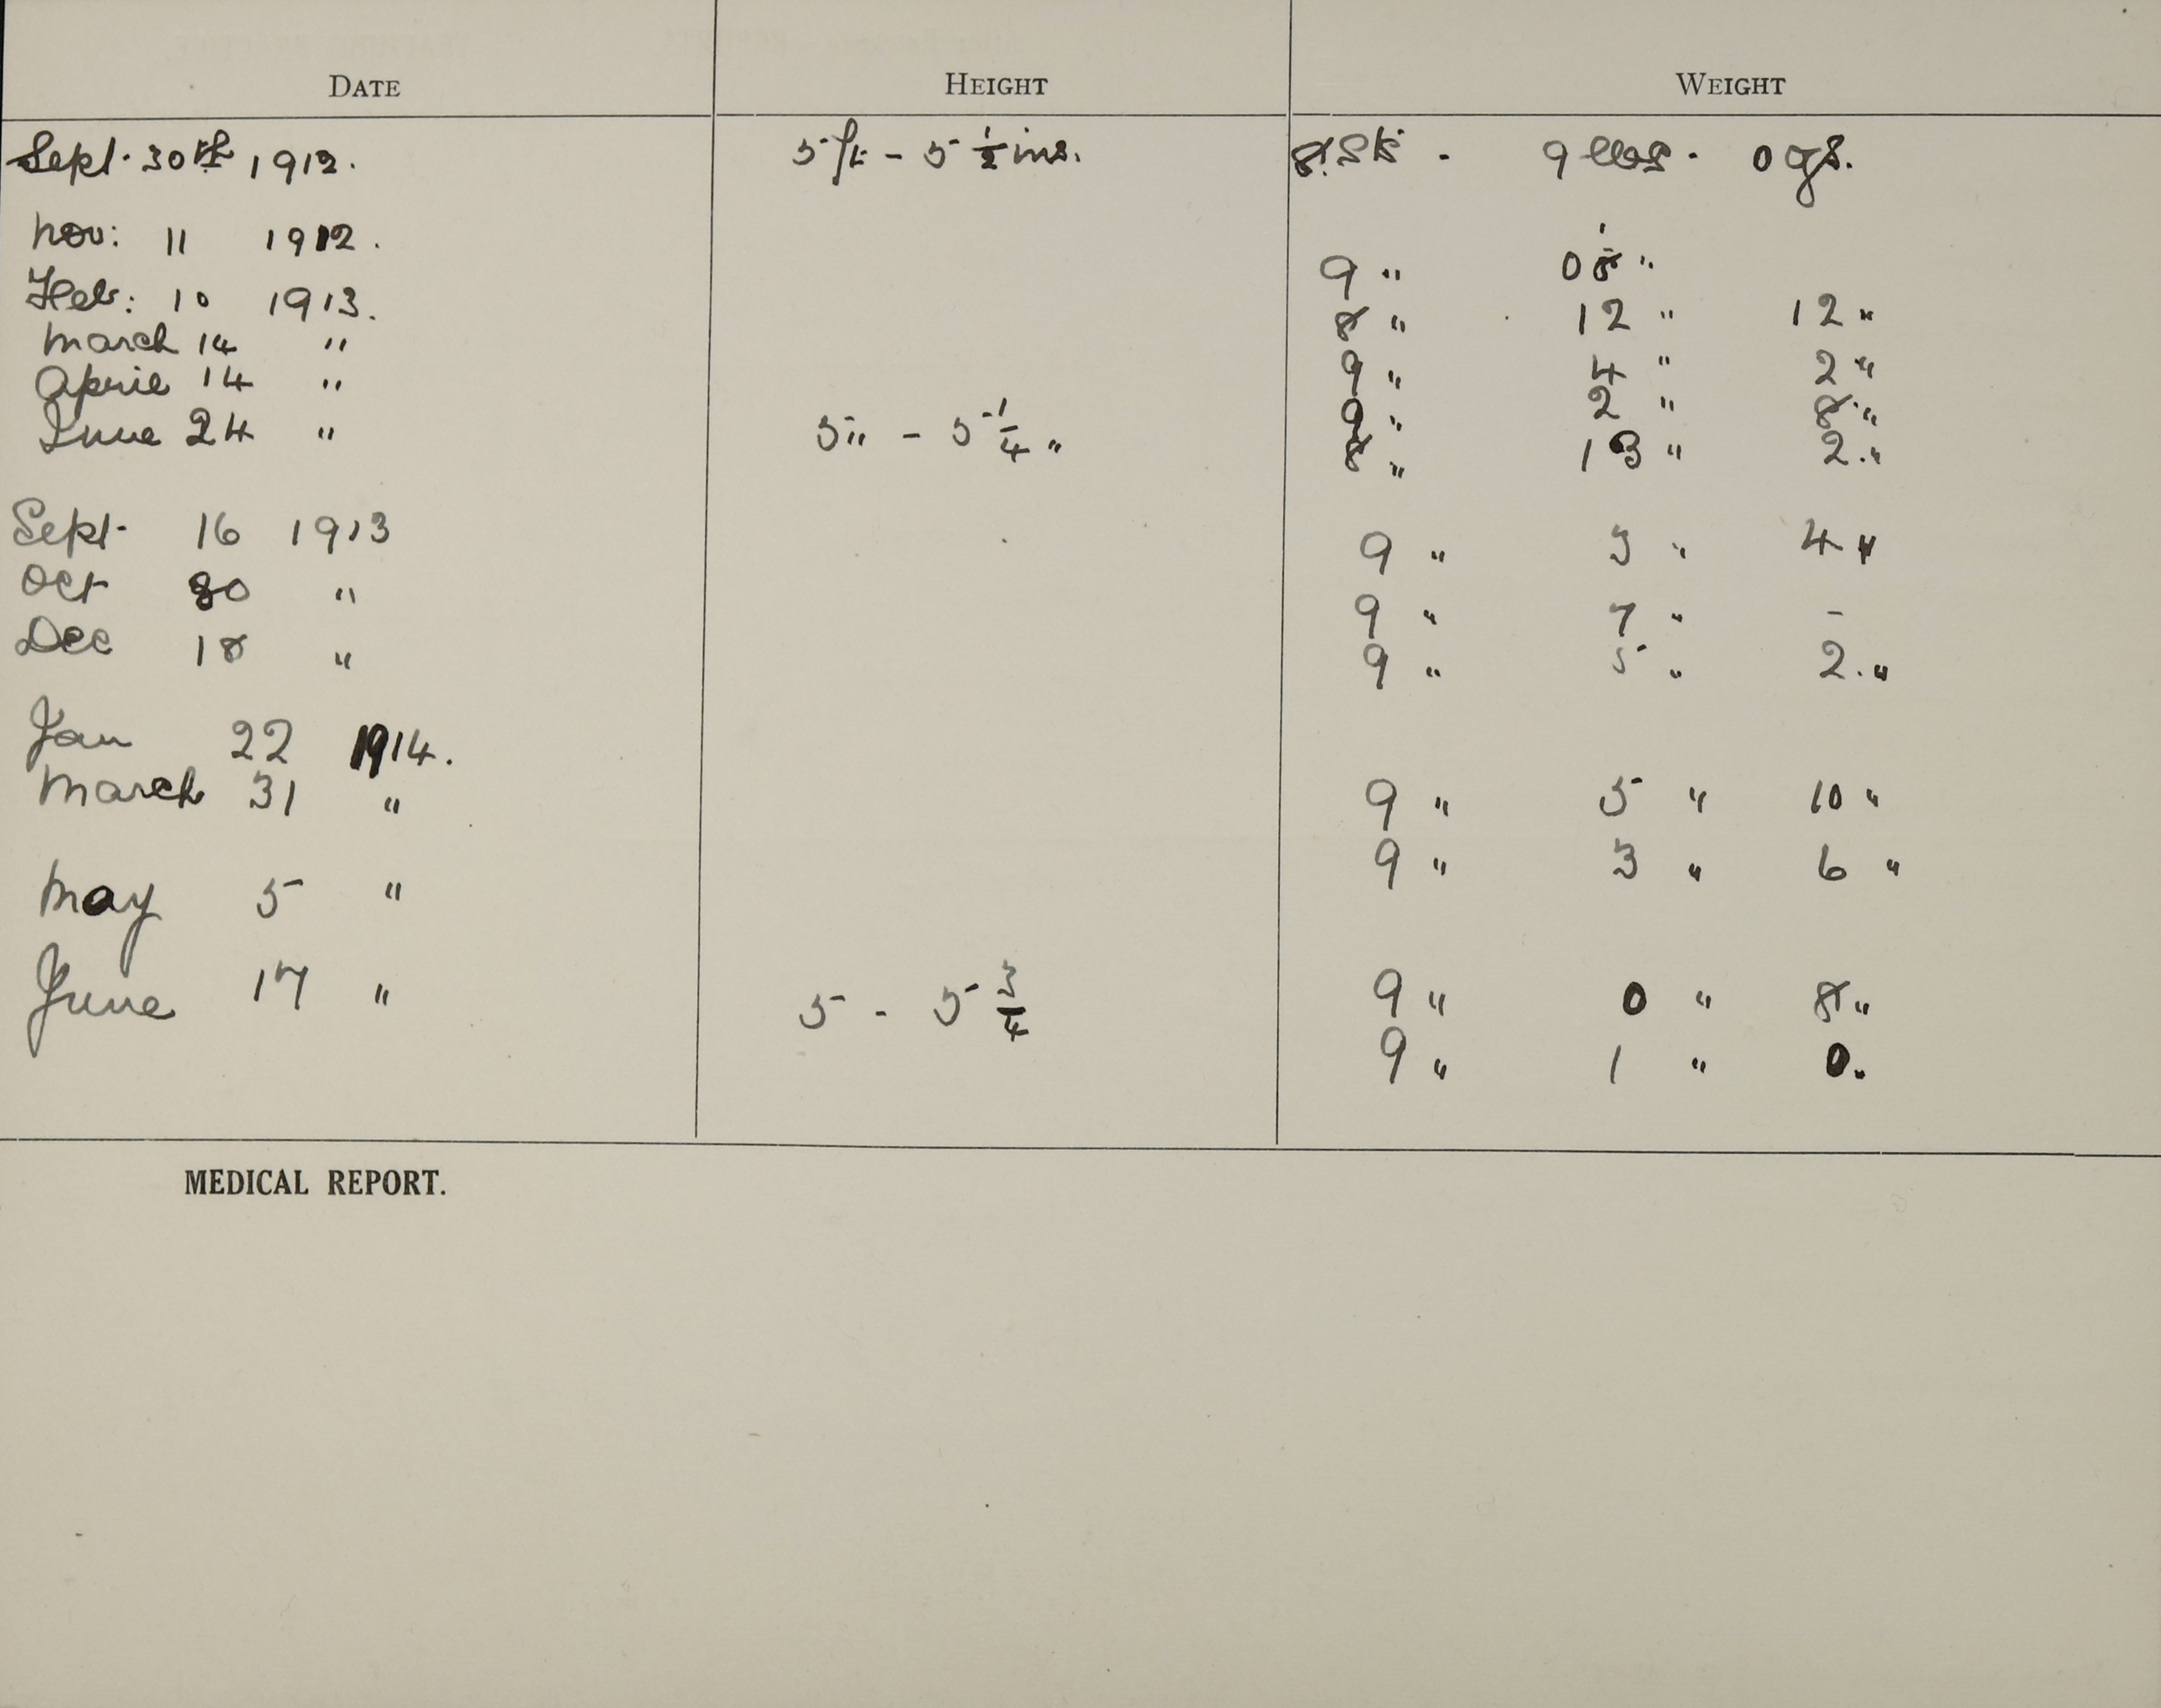 DATE HEIGHT WEIGHT
Sept. 30th 1912. 5 ft - 5 1/2 ins. 8. St. - 9 lbs. 0 ozs.
Nov: 11 1912. 9 " 0 "
Feb: 10 1913. 8 " 12 " 12 "
March 14 " 9 " 4 " 2 "
April 14 " 9 " 2 " 8 "
June 24 " 5 " - 5 1/4 " 8 " 13 " 2 "
Sept. 16 1913 9 " 3 " 4 "
Oct 30 " 9 " 7 " -
Dec 18 " 9 " 5 " 2. "
Jan 22 1914. 9 " 5 " 10 "
March 31 " 9 " 3 " 6 "
May 5 " 9 " 0 " 8 "
June 17 " 5 - 5 3/4 9 " 1 " 0 "
MEDICAL REPORT.